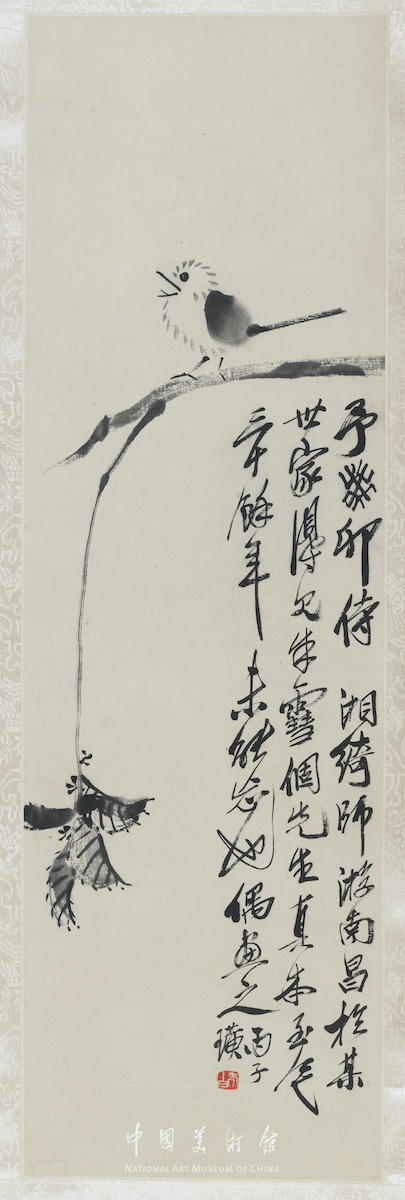 予癸卯侍 湘綺師游南昌於某
世家得見朱雪個先生真本至今
三十餘年未能忘也偶畫之丙子
璜
中國美術館
NATIONAL ART MUSEUM OF CHINA